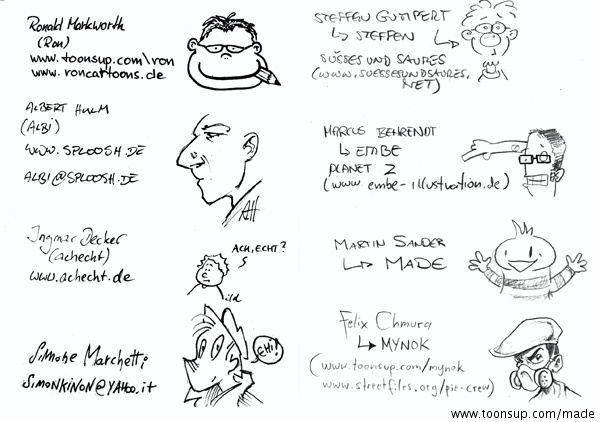 Ronald Markworth
(Ron)
www.toonsup.com\ron
www.roncartoons.de
ALBERT HULM
(ALBI)
WWW.SPLOOSH.DE
ALBI@SPLOOSH.DE
AH
Ingmar Decker
(achecht)
www.achecht.de
ACH, ECHT?
Simone Marchetti
SIMONKINON@YAHOO.it
EHI!
STEFFEN GUMPERT
↳ STEFFEN
SÜSSES UND SAURES
(WWW.SUESSESUNDSAURES.
NET)
MARCUS BEHRENDT
↳ EMBE
PLANET Z
(www.embe-illustration.de)
MARTIN SANDER
↳ MADE
Felix Chmura
↳ MYNOK
(www.toonsup.com/mynok
www.streetfiles.org/pic-crew)
www.toonsup.com/made